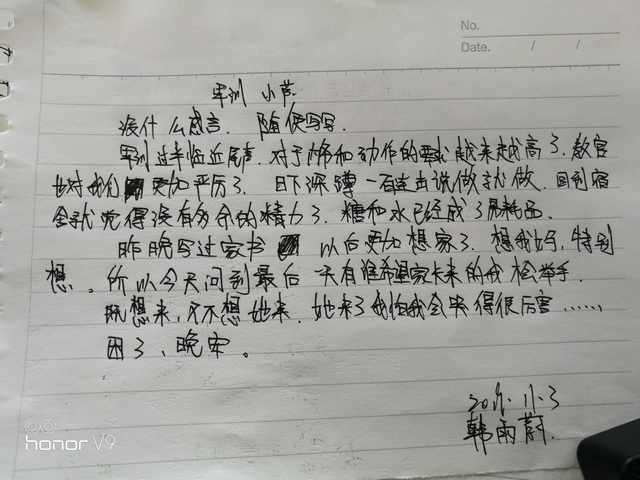 No.
Date. / /
军训 小节
没什么感言. 随便写写.
军训过半临近尾声. 对于内务和动作的要求越来越高了. 教官
也对我们更加严厉了. 日下深蹲一百连击说做就做. 回到宿
舍就觉得没有多余的精力了. 糖和水已经成了易耗品.
昨晚写过家书 以后更加想家了. 想我妈, 特别
想. 所以今天问到最后一天有谁希望家长来的我抢举手.
既想来, 又不想她来. 她来了我怕我会哭得很厉害......
困了, 晚安。
11.3
韩雨蔚.
honor V9